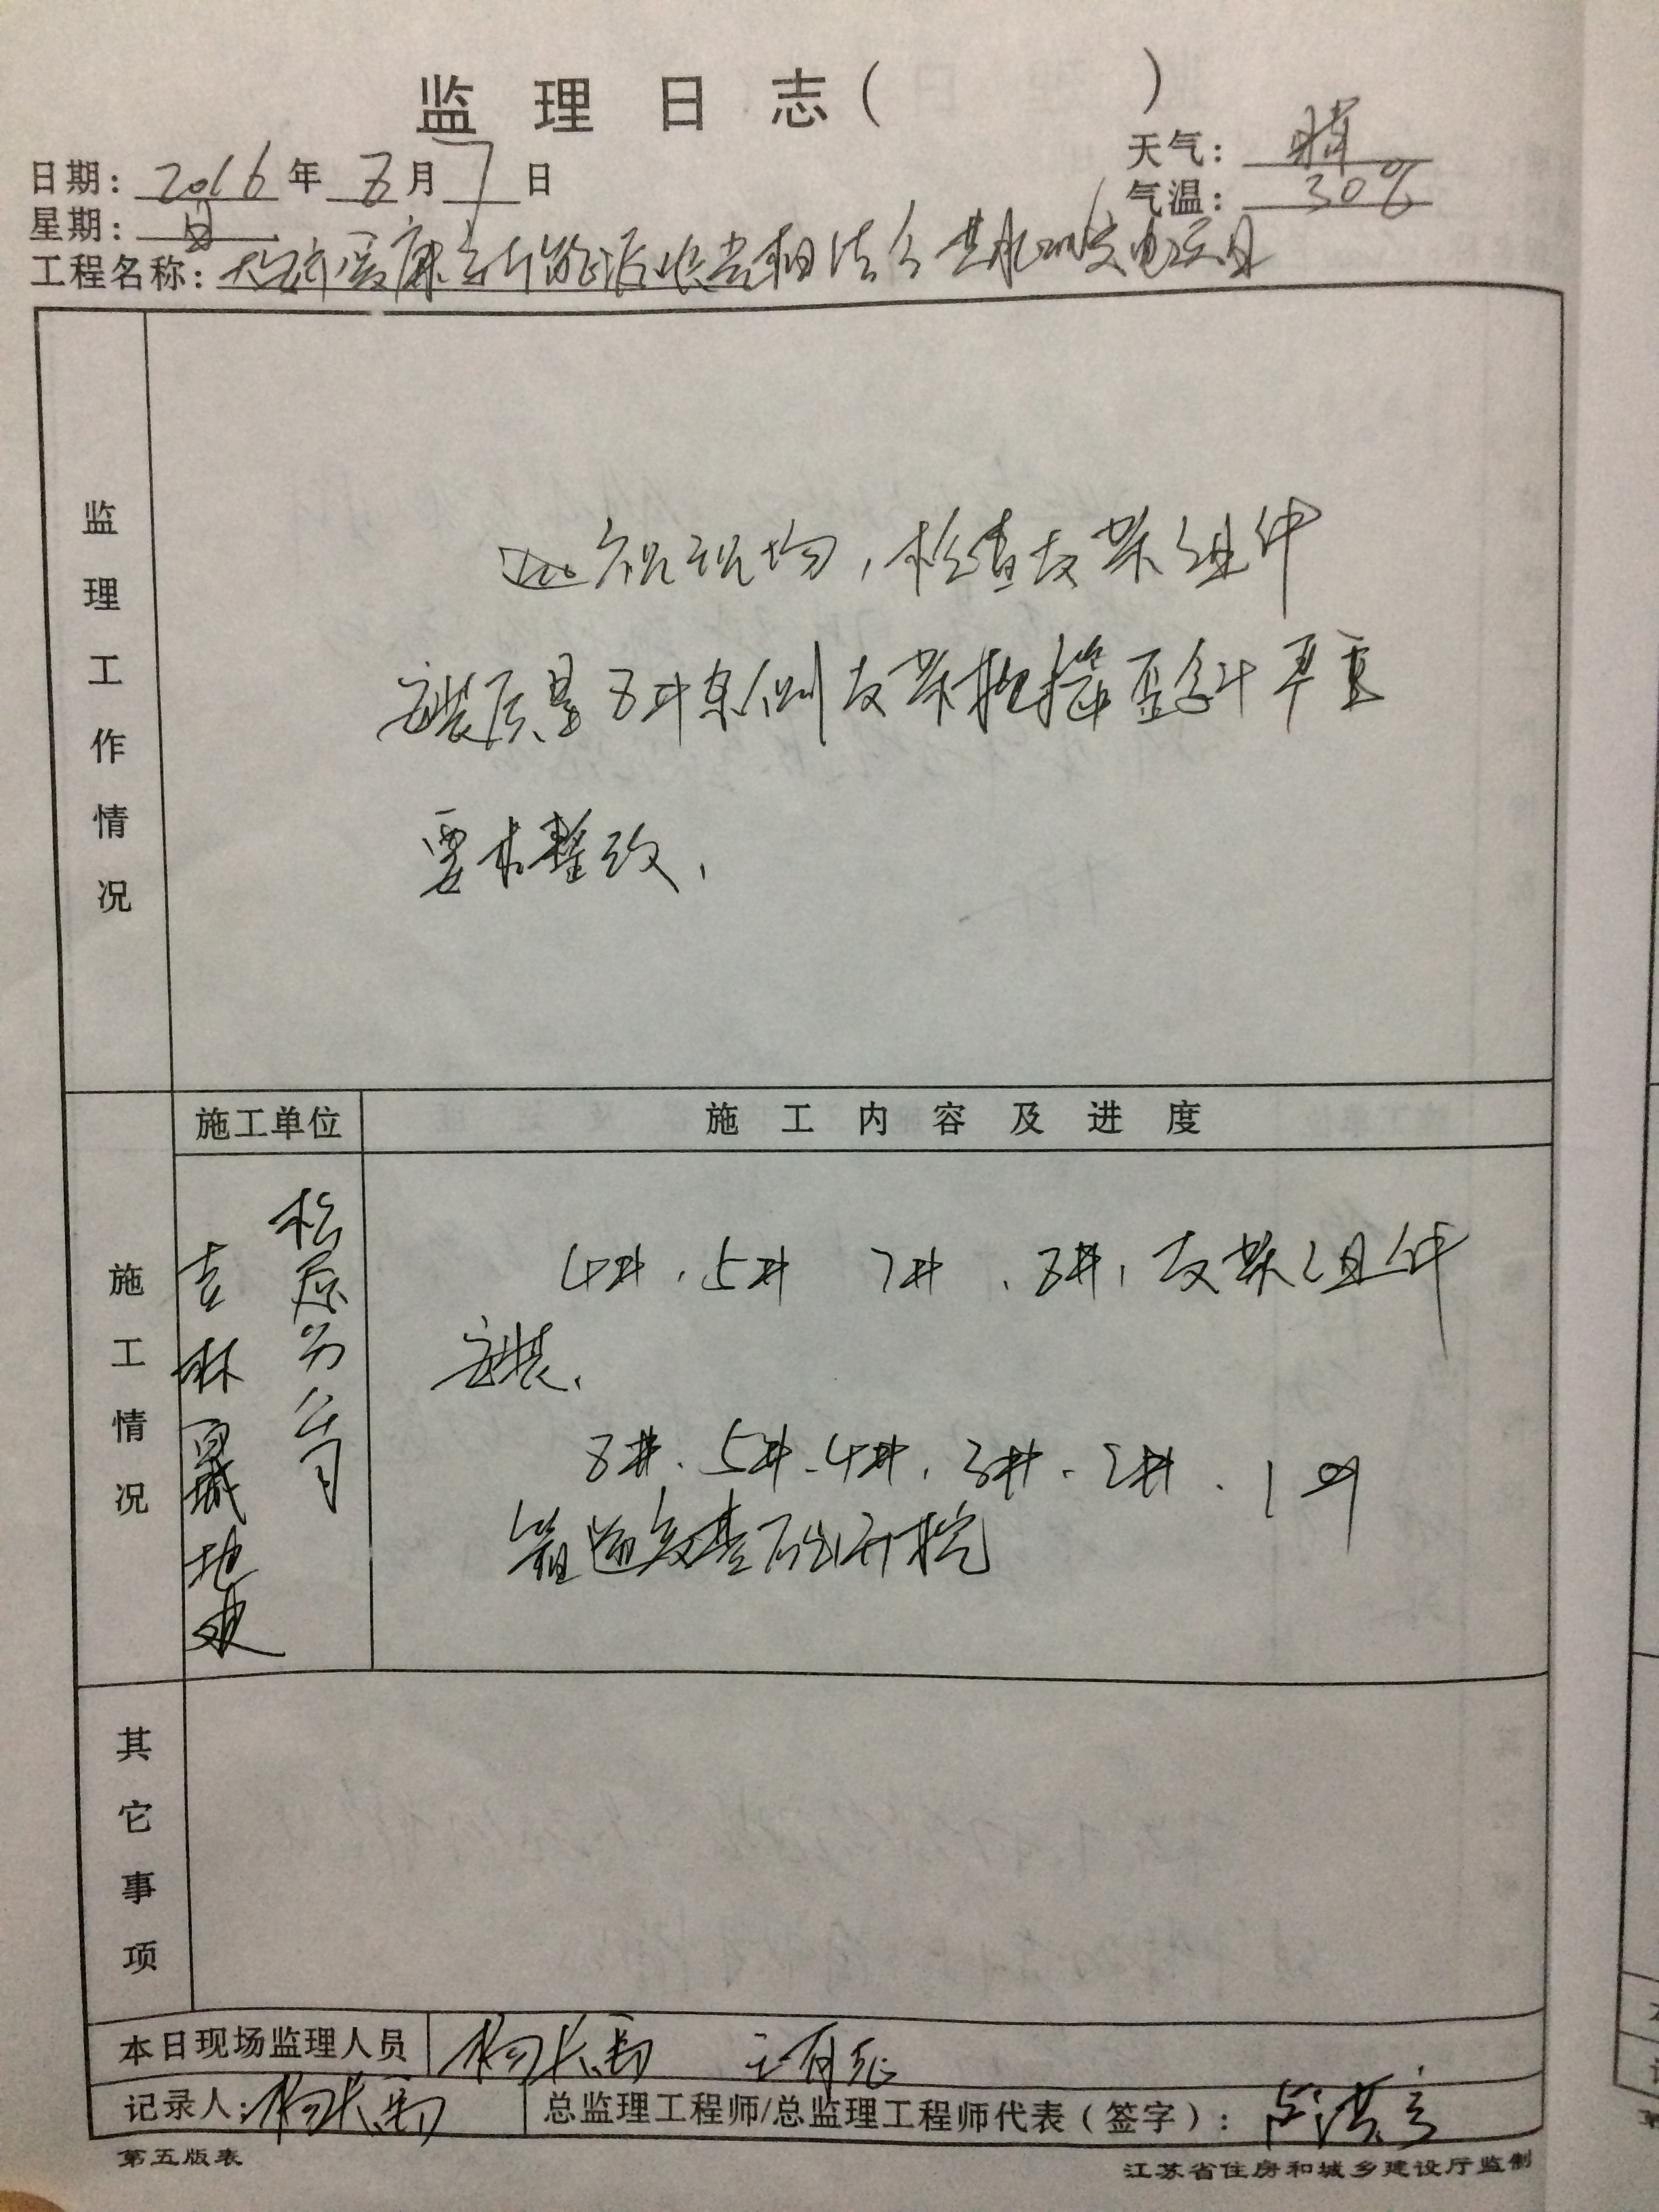 监理日志（ ）
日期：2016年8月7日
天气：晴
星期：日
气温：30℃
工程名称：大安市爱康新能源
监理工作情况
巡视现场，检查支架组件
安装质量8#东侧支架挠檩歪斜严重
要求整改、
施工单位
施工内容及进度
施工情况
松原分公司
吉林
地建
4#、5# 7#、8#、支架组件
安装、
8#、5#、4#、3#、2#、1#
箱逆变基础开挖
其它事项
本日现场监理人员
记录人：
总监理工程师/总监理工程师代表（签字）：
第五版表
江苏省住房和城乡建设厅监制